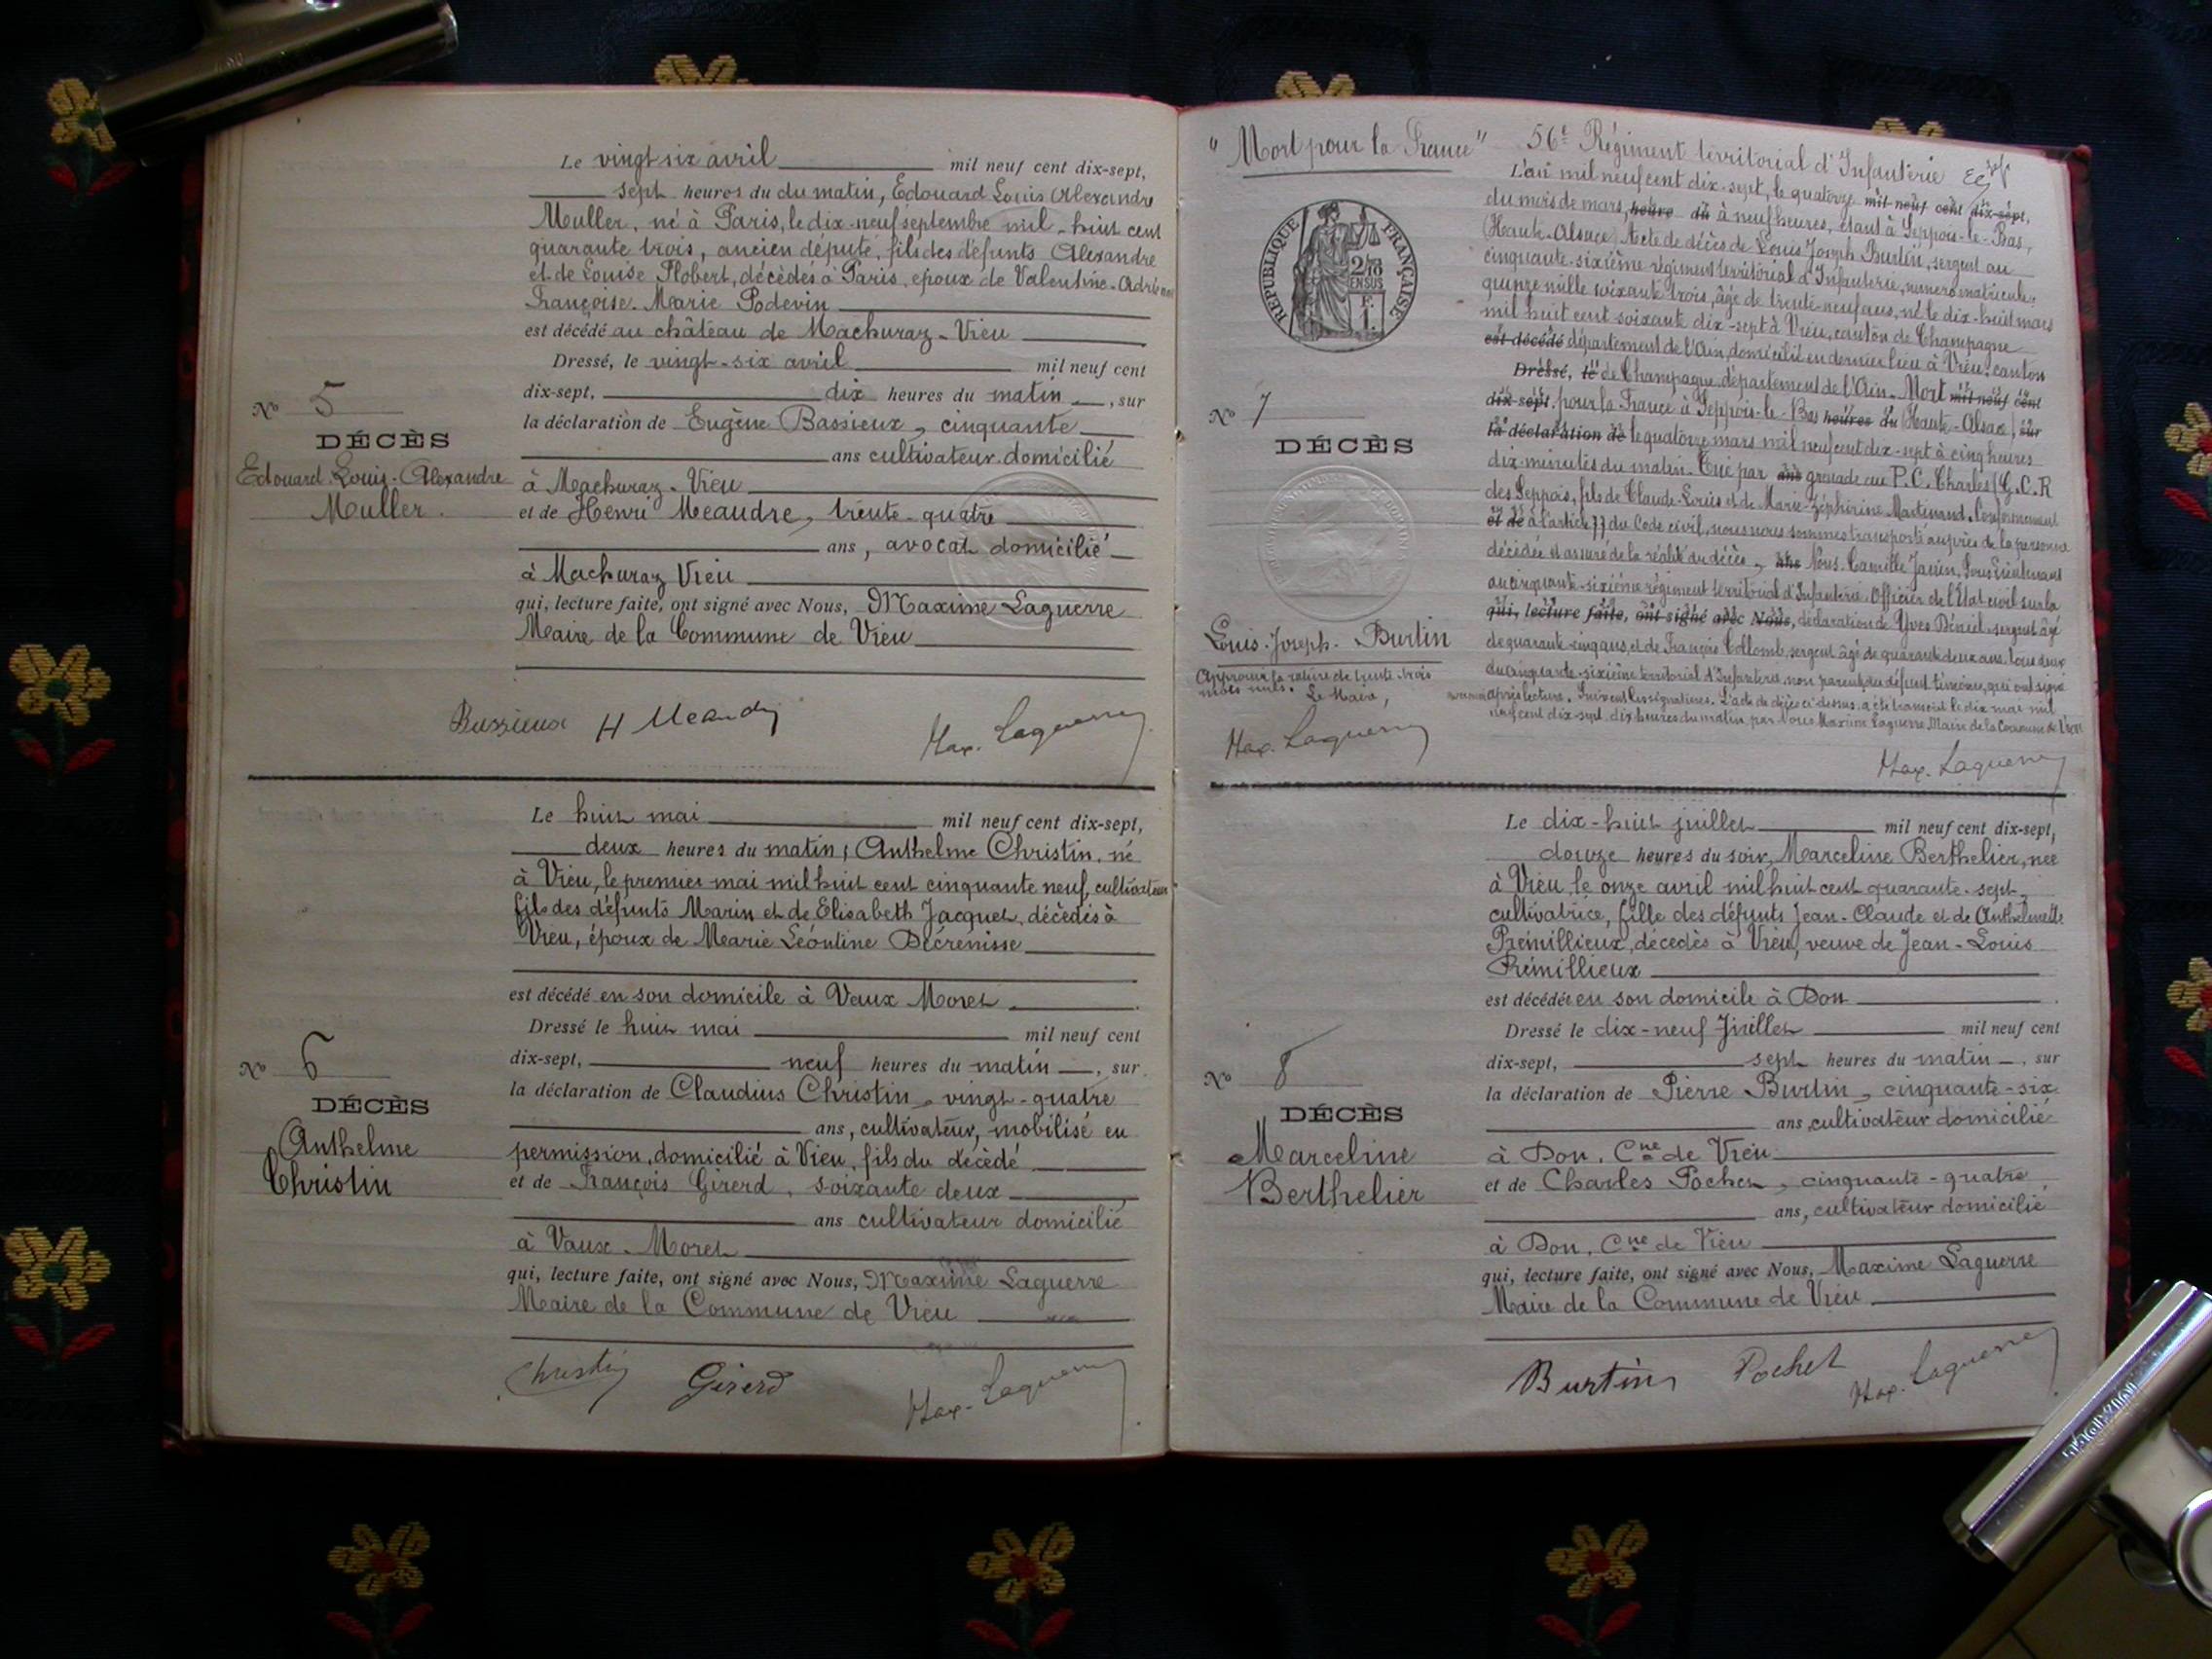 Le vingt six avril mil neuf cent dix-sept,
sept heures du du matin, Edouard Louis Alexandre
Muller, né à Paris, le dix-neuf septembre mil-huit cent
quarante trois, ancien député, fils des défunts Alexandre
et de Louise Plobert, décédés à Paris, époux de Valentine
Françoise-Marie Podevin
est décédé au château de Machuraz-Vieu
Dressé, le vingt-six avril mil neuf cent
dix-sept, dix heures du matin, sur
la déclaration de Eugène Bassieux, cinquante
ans cultivateur domicilié
à Machuraz-Vieu
et de Henri Meaudre, trente-quatre
ans, avocat domicilié
à Machuraz Vieu
qui, lecture faite, ont signé avec Nous, Maxime Laguerre
Maire de la Commune de Vieu
N° 5
DÉCÈS
Edouard-Louis-Alexandre
Muller.
Bassieux H Meaudre Max. Laguerre
Le huit mai mil neuf cent dix-sept,
deux heures du matin, Anthelme Christin, né
à Vieu, le premier mai mil huit cent cinquante neuf, cultivateur
fils des défunts Marin et de Elisabeth Jacquet, décédés à
Vieu, époux de Marie Léontine Décrenisse
est décédé en son domicile à Vaux Moret
Dressé le huit mai mil neuf cent
dix-sept, neuf heures du matin, sur
la déclaration de Claudius Christin, vingt-quatre
ans, cultivateur, mobilisé en
permission, domicilié à Vieu, fils du décédé
et de François Girerd, soixante deux
ans cultivateur domicilié
à Vaux-Moret
qui, lecture faite, ont signé avec Nous, Maxime Laguerre
Maire de la Commune de Vieu
N° 6
DÉCÈS
Anthelme
Christin
Christin Girerd Max. Laguerre
"Mort pour la France" 56e Régiment territorial d'Infanterie
L'an mil neuf cent dix-sept, le quatorze mil neuf cent dix-sept,
du mois de mars, heure du à neuf heures, étant à Seppois-le-Bas,
(Haute-Alsace) Acte de décès de Louis Joseph Burtin, sergent au
cinquante-sixième régiment territorial d'Infanterie, numéro matricule
quinze mille soixante trois, âgé de trente-neuf ans, né le dix-huit mars
mil huit cent soixante dix-sept à Vieu, canton de Champagne
est décédé département de l'Ain, domicilié en dernier lieu à Vieu, canton
Dressé, le de Champagne, département de l'Ain. Mort mil neuf cent
dix-sept, pour la France à Seppois-le-Bas heures du (Haute-Alsace), sur
la déclaration de le quatorze mars mil neuf cent dix-sept à cinq heures
dix minutes du matin. Tué par ans grenade au P.C. Charles (G.C.R
des Seppois, fils de Claude-Louis et de Marie-Zéphirine Martinand. Conformément
et de à l'article 77 du Code civil, nous nous sommes transporté auprès de la personne
décédée et assuré de la réalité du décès, ans Nous, Camille Javin, Sous Lieutenant
au cinquante-sixième régiment territorial d'Infanterie, Officier de l'Etat civil sur la
qui, lecture faite, ont signé avec Nous, déclaration de Yves Déniel sergent âgé
de quarante-cinq ans, et de François Collomb, sergent âgé de quarante deux ans, tous deux
du cinquante-sixième territorial d'Infanterie, non parents du défunt témoins, qui ont signé
après lecture. Suivent les signatures. L'acte de décès ci-dessus, a été transcrit le dix mai mil
neuf cent dix-sept, dix heures du matin, par Nous Maxime Laguerre, Maire de la Commune de Vieu
RÉPUBLIQUE FRANÇAISE
N° 7
DÉCÈS
Louis-Joseph-Burtin
Approuvé la rature de trente-trois
mots nuls. Le Maire,
Max. Laguerre
Max. Laguerre
Le dix-huit juillet mil neuf cent dix-sept,
douze heures du soir, Marceline Berthelier, née
à Vieu, le onze avril mil huit cent quarante-sept,
cultivatrice, fille des défunts Jean-Claude et de Anthelmette
Prémillieux, décédés à Vieu, veuve de Jean-Louis
Prémillieux
est décédée en son domicile à Don
Dressé le dix-neuf Juillet mil neuf cent
dix-sept, sept heures du matin, sur
la déclaration de Pierre Burtin, cinquante-six
ans, cultivateur domicilié
à Don, Cne de Vieu
et de Charles Pochet, cinquante-quatre
ans, cultivateur domicilié
à Don, Cne de Vieu
qui, lecture faite, ont signé avec Nous, Maxime Laguerre
Maire de la Commune de Vieu
N° 8
DÉCÈS
Marceline
Berthelier
Burtin Pochet Max. Laguerre